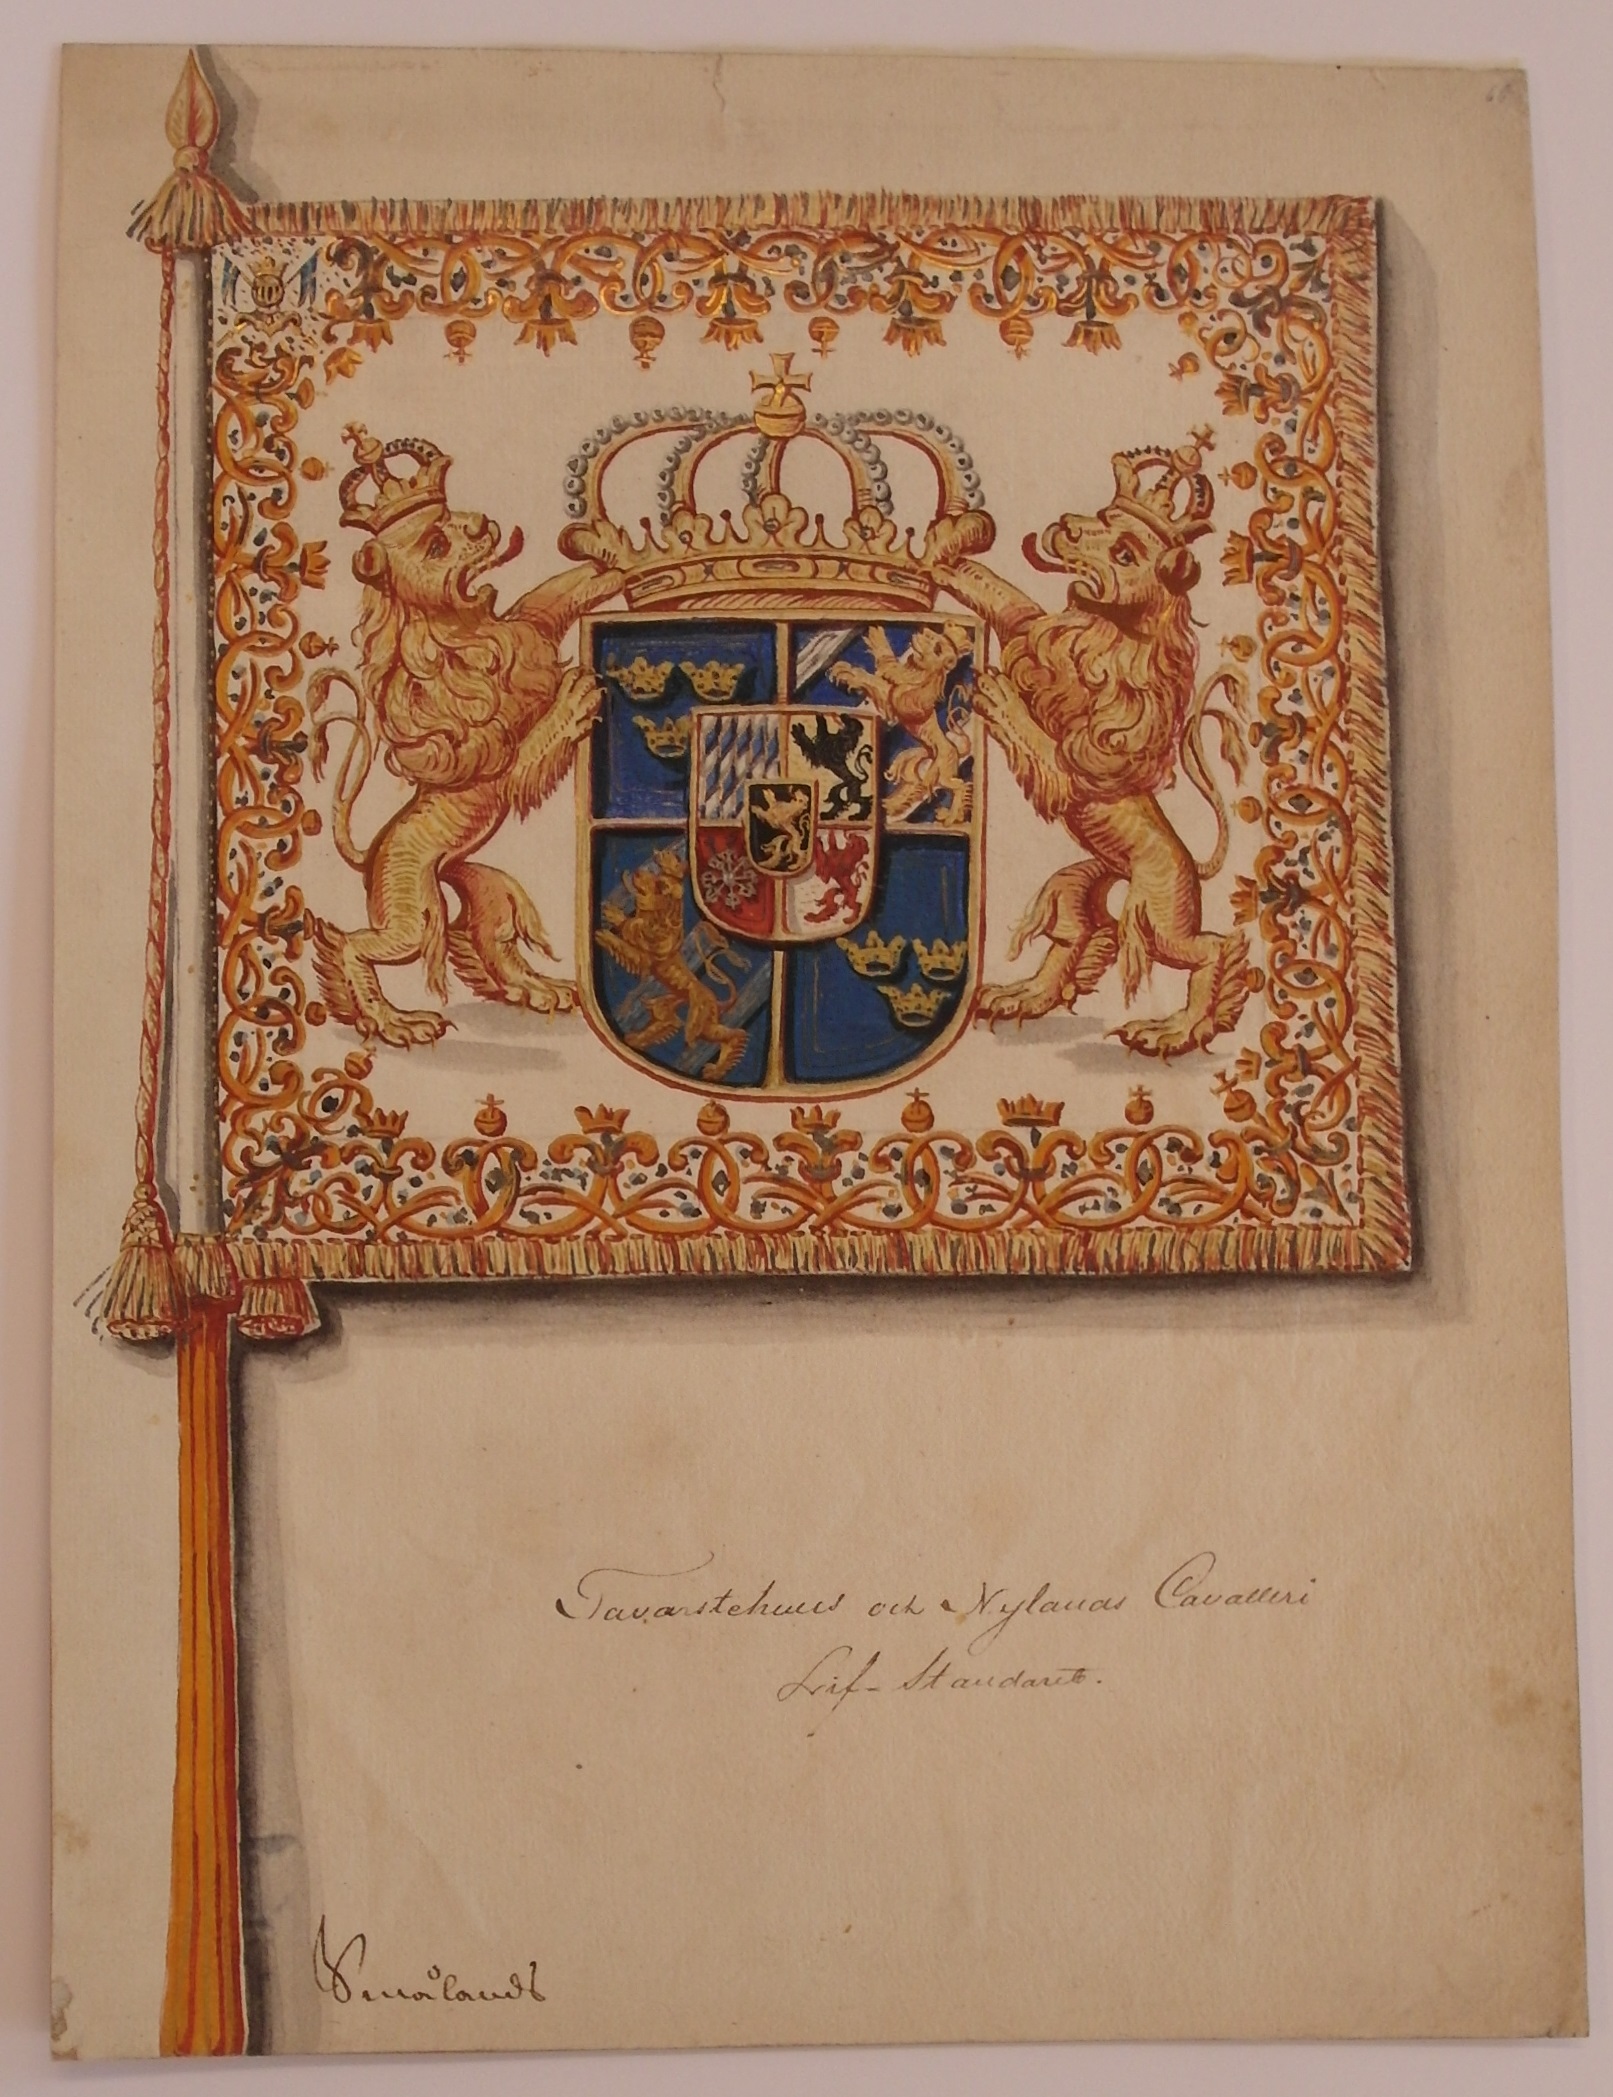 68
Tavarstehuus och Nylands Cavalleri
Lif-Standaret.
Smålands